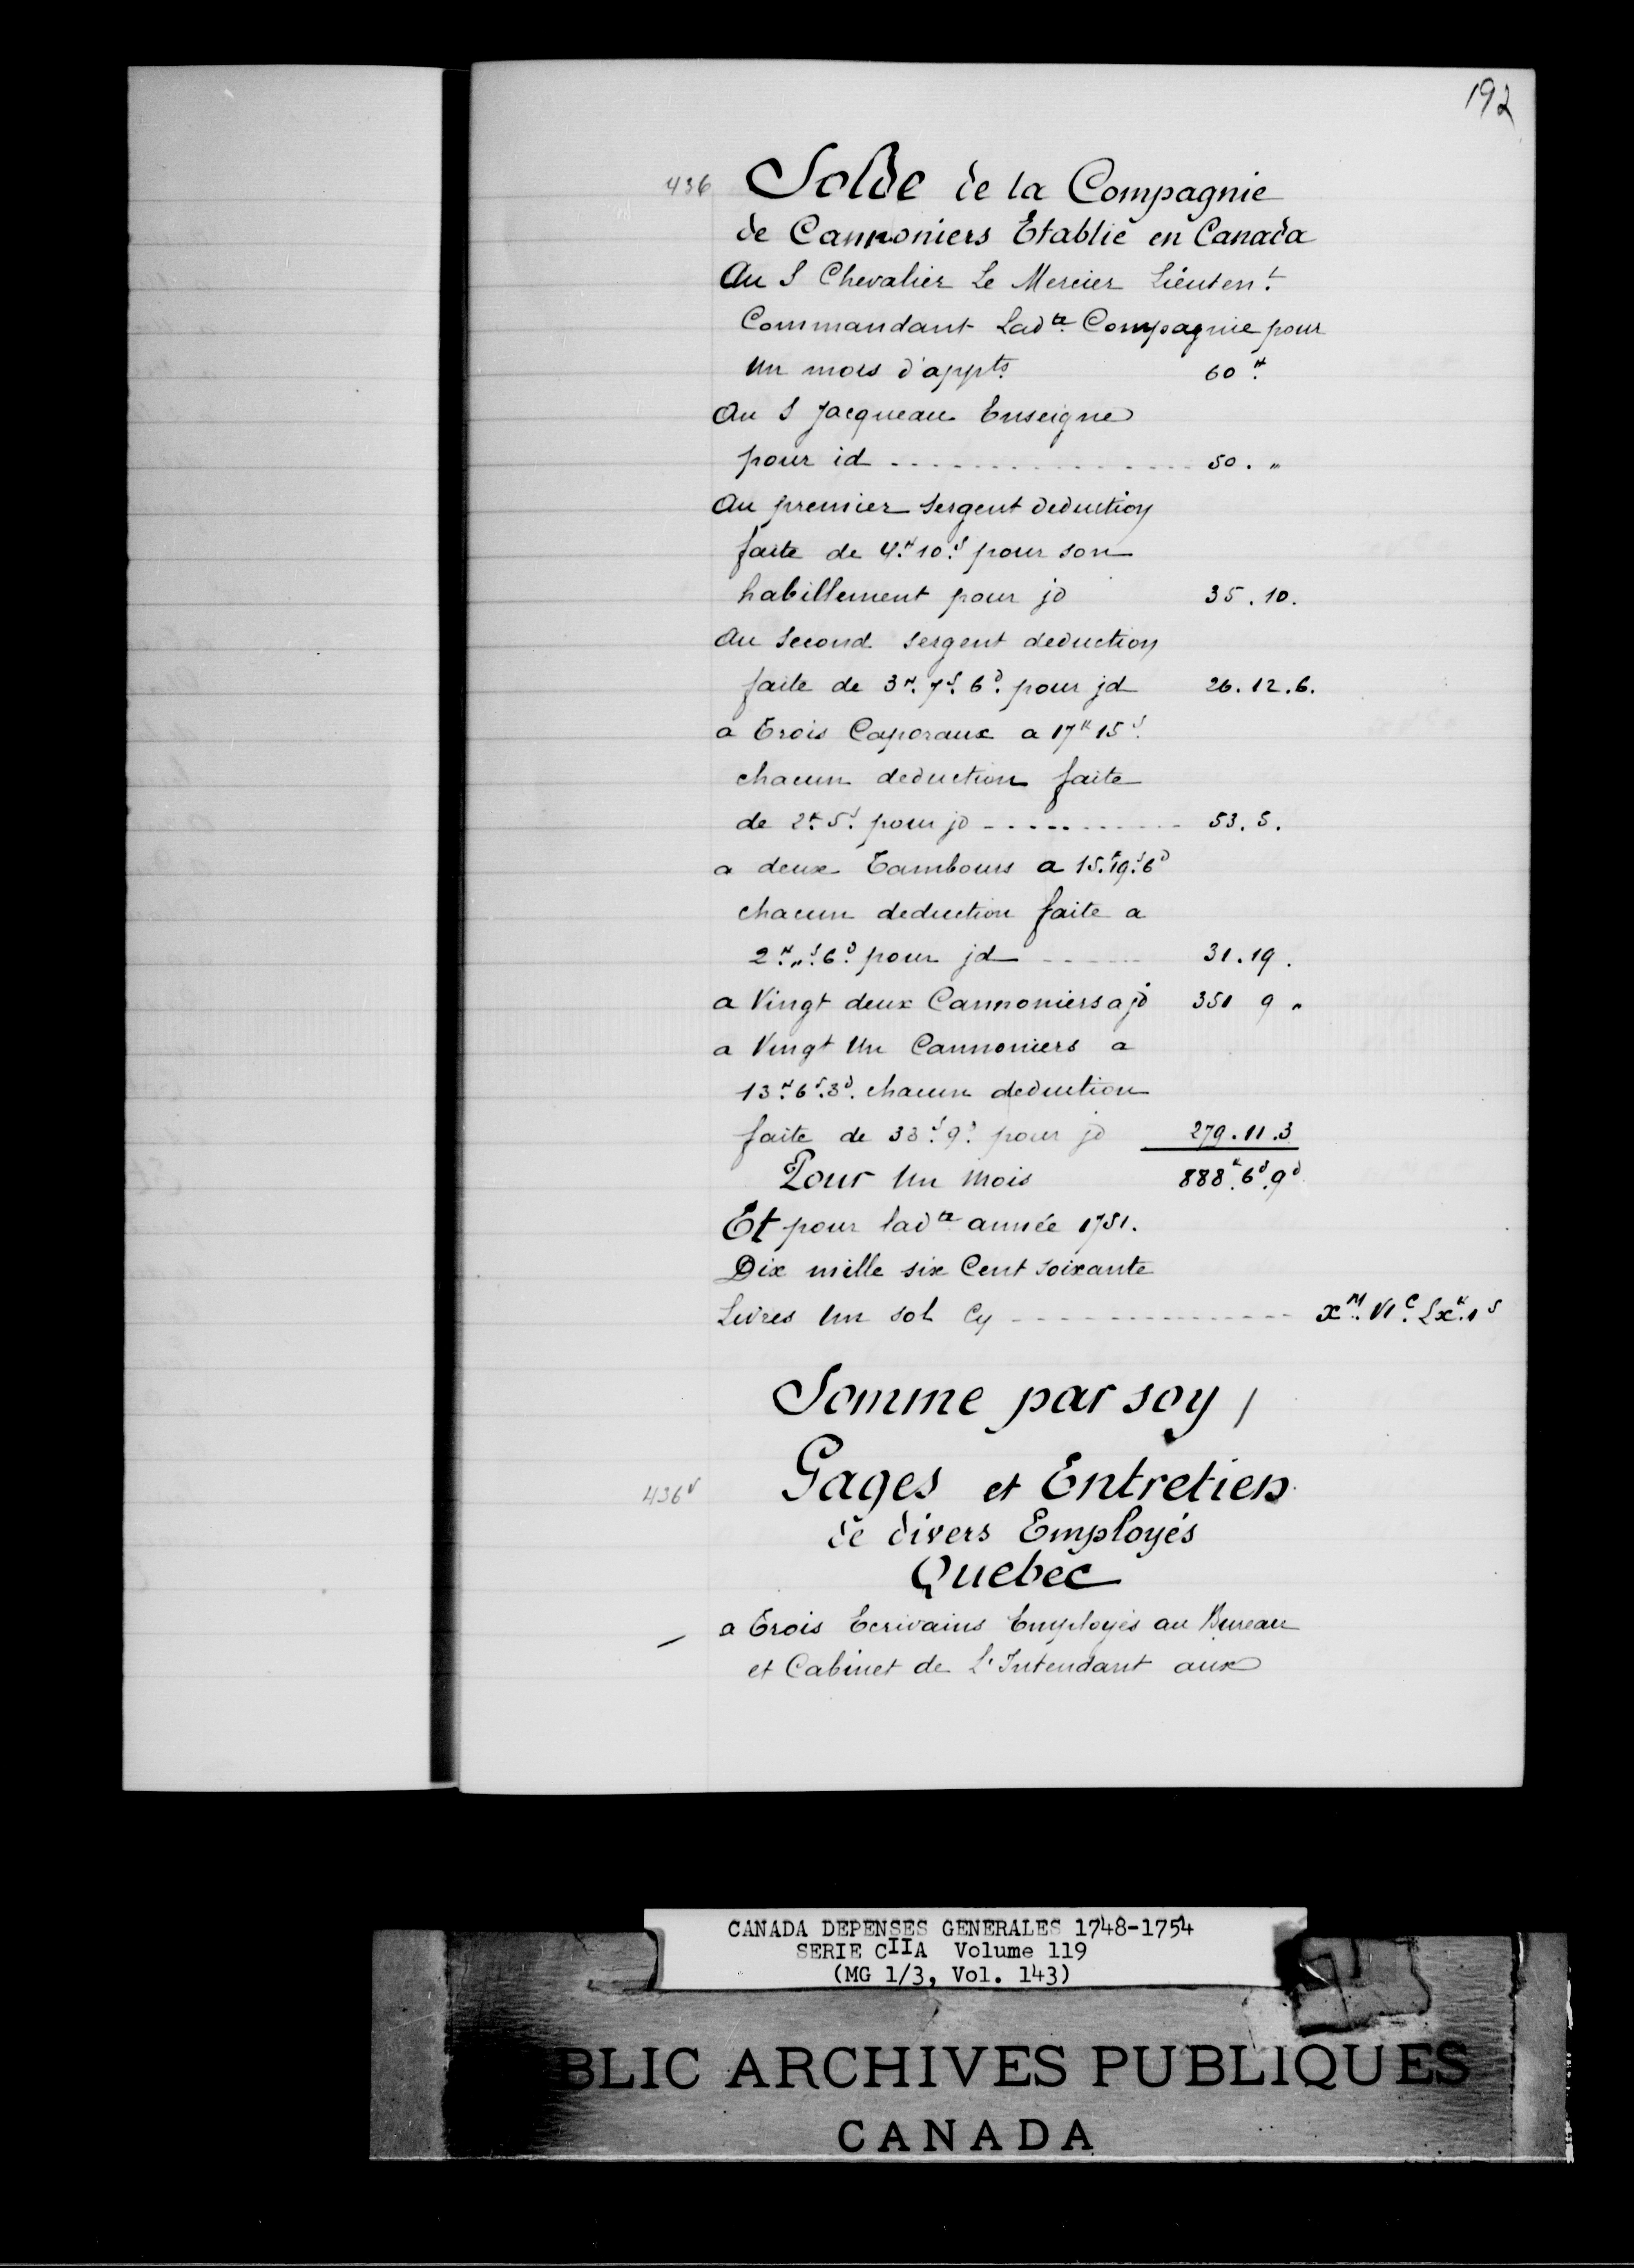 192
436 Solde de la Compagnie
de Cannoniers Etablie en Canada
Au S Chevalier Le Mercier Lieutent
Commandant Ladte Compagnie pour
Un mois d'appts 60 ₶
Au S Jacqueau Enseigne
pour id ................ 50 . "
Au premier sergent deduction
faite de 4₶ 10s pour son
habillement pour jd 35 . 10.
Au Second Sergent deduction
faite de 3₶. 7s. 6d. pour jd 26 . 12 . 6.
a Trois Caporaux a 17₶ 15s.
chacun deduction faite
de 2₶. 5s. pour jd ............ 53 . 5 .
a deux Tambours a 15.₶19.s6d
chacun deduction faite a
2₶. " s. 6d. pour jd ...... 31 . 19 .
a Vingt deux Cannoniers a jd 351 9 "
a Vingt Un Cannoniers a
13₶. 6s. 3d. chacun deduction
faite de 33s. 9d. pour jd 279 . 11 . 3
Pour Un Mois 888₶. 6s. 9d
Et pour ladte année 1751.
Dix mille six Cent soixante
Livres Un sol Cy ................ xM. VIC. Lx₶. 1s
Somme par soy /
436v Gages et Entretien
de divers Employés
Quebec
a Trois Ecrivains Employés au Bureau
et Cabinet de L'Intendant aux
CANADA DEPENSES GENERALES 1748-1754
SERIE CIIA Volume 119
(MG 1/3, Vol. 143)
BLIC ARCHIVES PUBLIQUES
CANADA